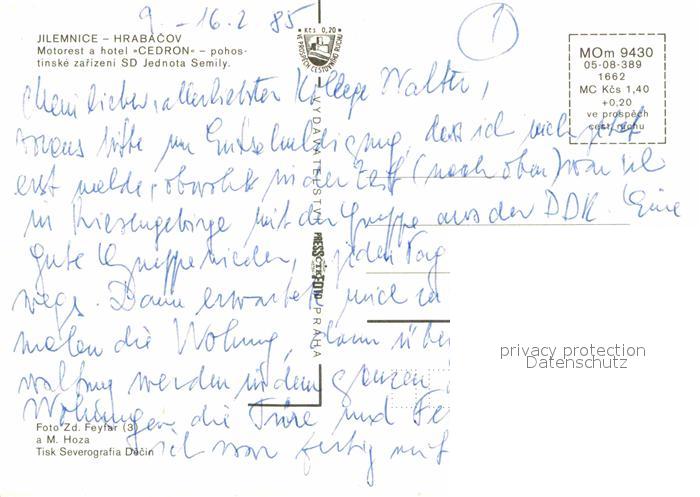 9. - 16.2 85
①
JILEMNICE – HRABAČOV
Motorest a hotel »CEDRON« – pohos-
tinské zařízení SD Jednota Semily.
Kčs 0,20
VE PROSPĚCH CESTOVNÍHO RUCHU
MOm 9430
05-08-389
1662
MC Kčs 1,40
+0,20
ve prospěch
cest. ruchu
Mein lieber, allerliebster Kollege Walter,
voraus bitte um Entschuldigung, dass ich mich jetzt
erst melde, obwohl in der Zeit (nach oben) war ich
in Riesengebirge mit der Gruppe aus der DDR. Eine
gute Gruppe wieder, jeden Tag
wegs. Dann erwartet mich
malen die Wohnung, dann
werden in dem ganzen
Wohnungen die Türe und Fe
ich war fertig mit
VYDAVATELSTVÍ PRESSFOTO PRAHA
Foto Zd. Feyfar (3)
a M. Hoza
Tisk Severografia Děčín
privacy protection
Datenschutz